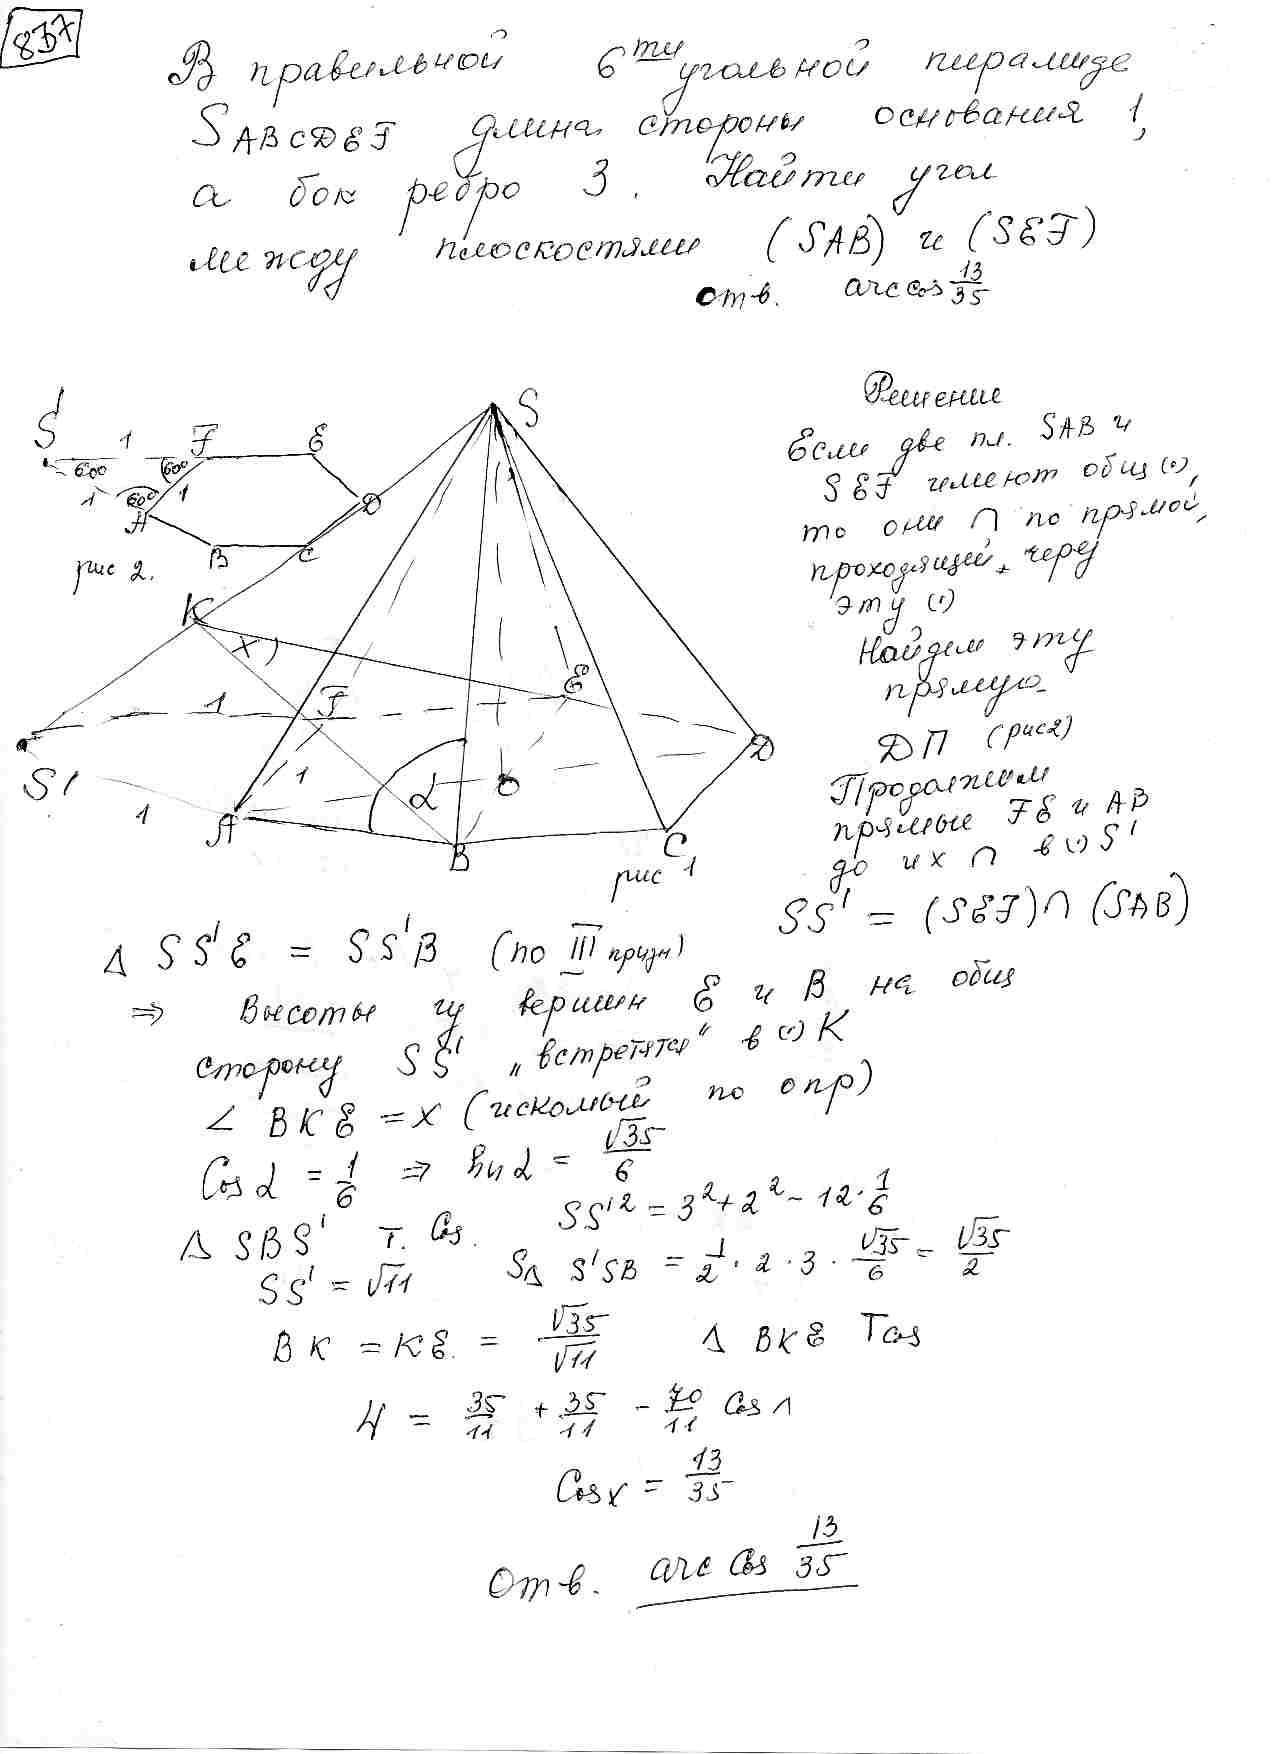 837
В правильной 6ти угольной пирамиде
SABCDEF длина стороны основания 1,
а бок ребро 3. Найти угол
между плоскостями (SAB) и (SEF)
отв. arccos 13/35
S' 1 F E
60° 60°
1 60° 1 D
A B C
рис 2.
S
K
x
1 F E
S' 1 D
1 A α O
B C
рис 1
Решение
Если две пл. SAB и
SEF имеют общ (·),
то они ∩ по прямой,
проходящей через
эту (·)
Найдем эту
прямую
ДП (рис2)
Продолжим
прямые FE и AB
до их ∩ в (·) S'
SS' = (SEF) ∩ (SAB)
Δ SS'E = SS'B (по III призн)
⇒ Высоты из вершин E и B на общ
сторону SS' „встретятся" в (·) K
∠ BKE = x (искомый по опр)
Cos α = 1/6 ⇒ Sin α = √35/6
Δ SBS' т. Cos. SS'² = 3² + 2² - 12 · 1/6
SS' = √11 SΔ S'SB = 1/2 · 2 · 3 · √35/6 = √35/2
BK = KE. = √35/√11 Δ BKE Tcos
4 = 35/11 + 35/11 - 70/11 Cos
Cos x = 13/35
Отв. arc cos 13/35